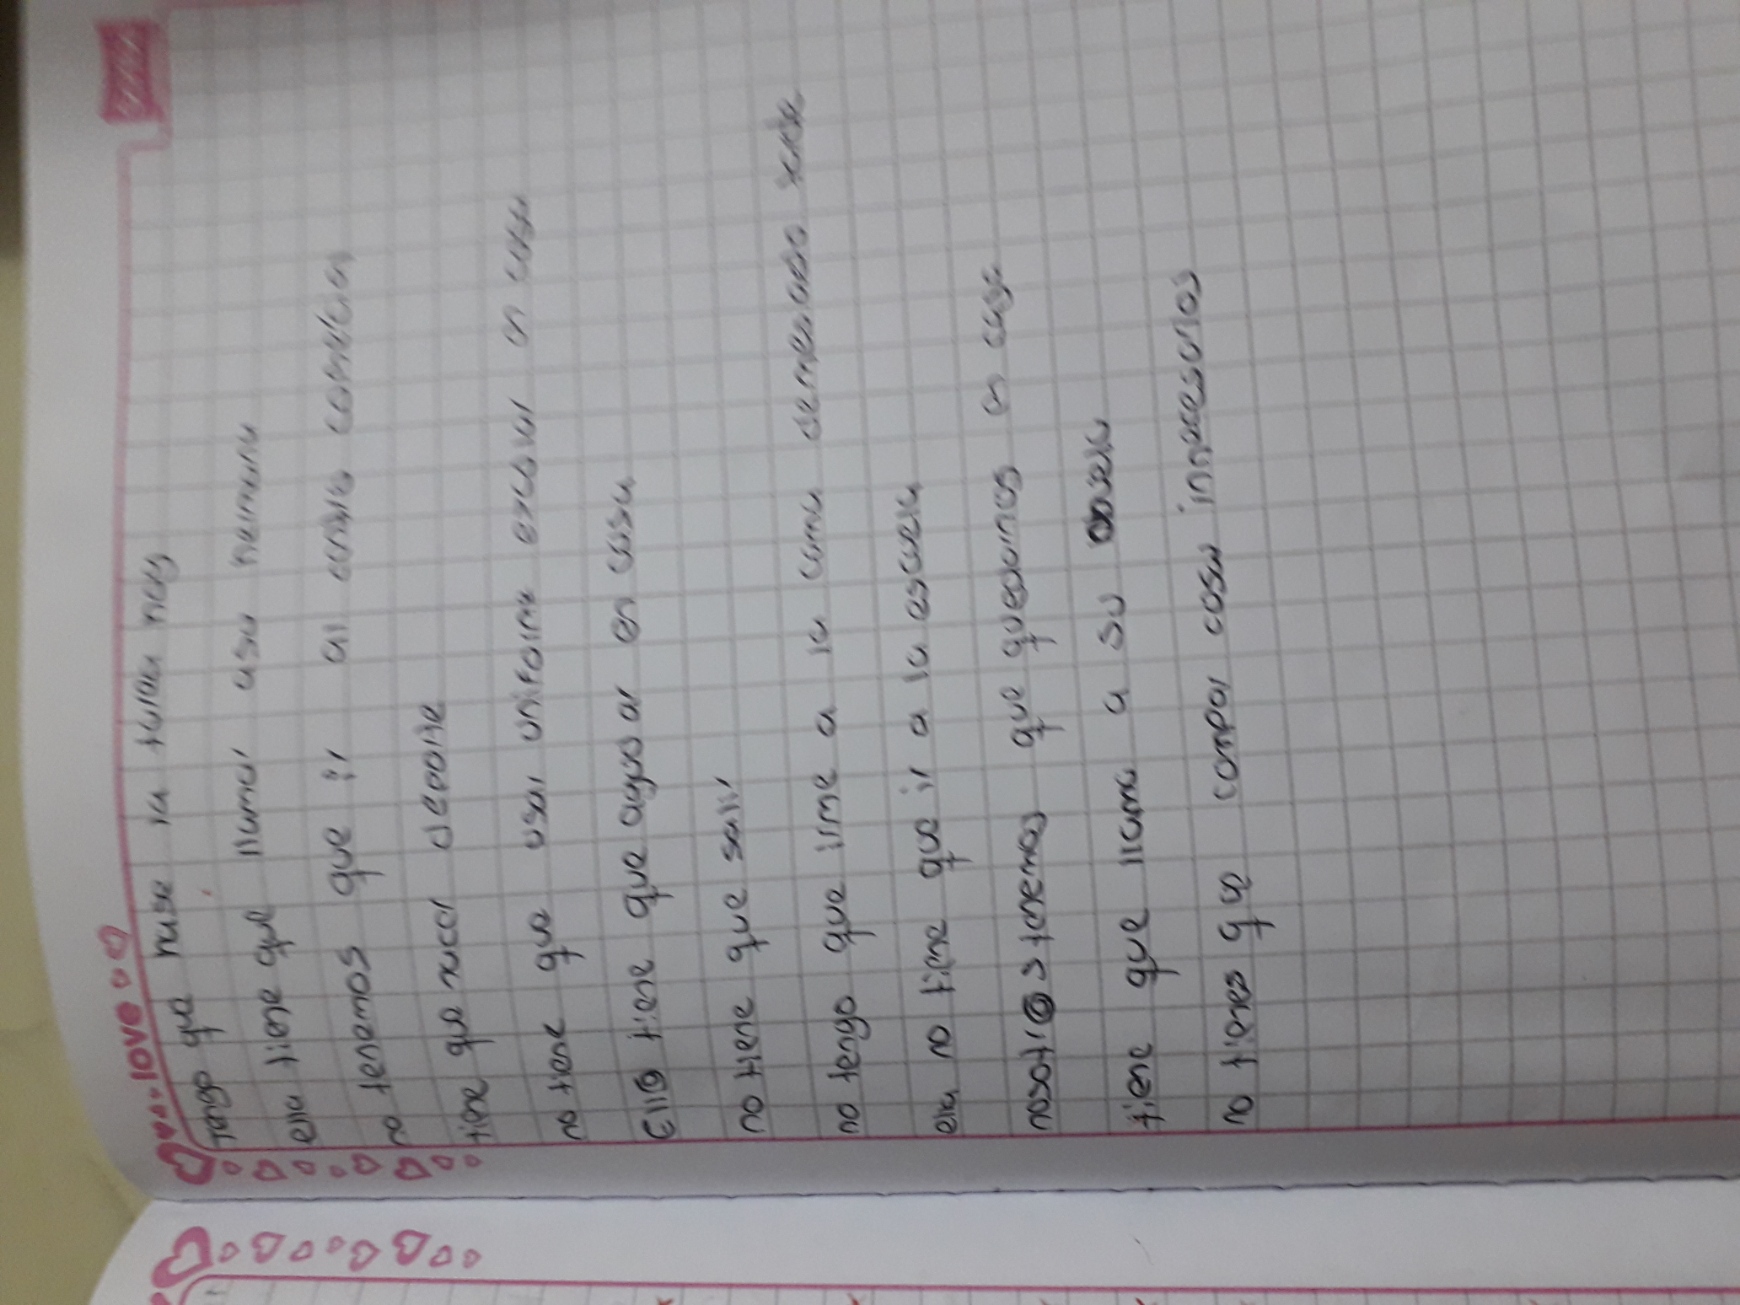 love
Tengo que hase la tarea hoy
ella tiene que llamar asu hermana
no tenemos que ir al
tiene que hacer deporte
no tiene que usar uniforme en casa
Ell@ tiene que en casa
no tiene que salir
no tengo que irme a la cama
ella no tiene que ir a la escuela
nosotr@s tenemos que quedarnos en casa
tiene que llama a su abuela
no tienes que compar cosas innecesarios